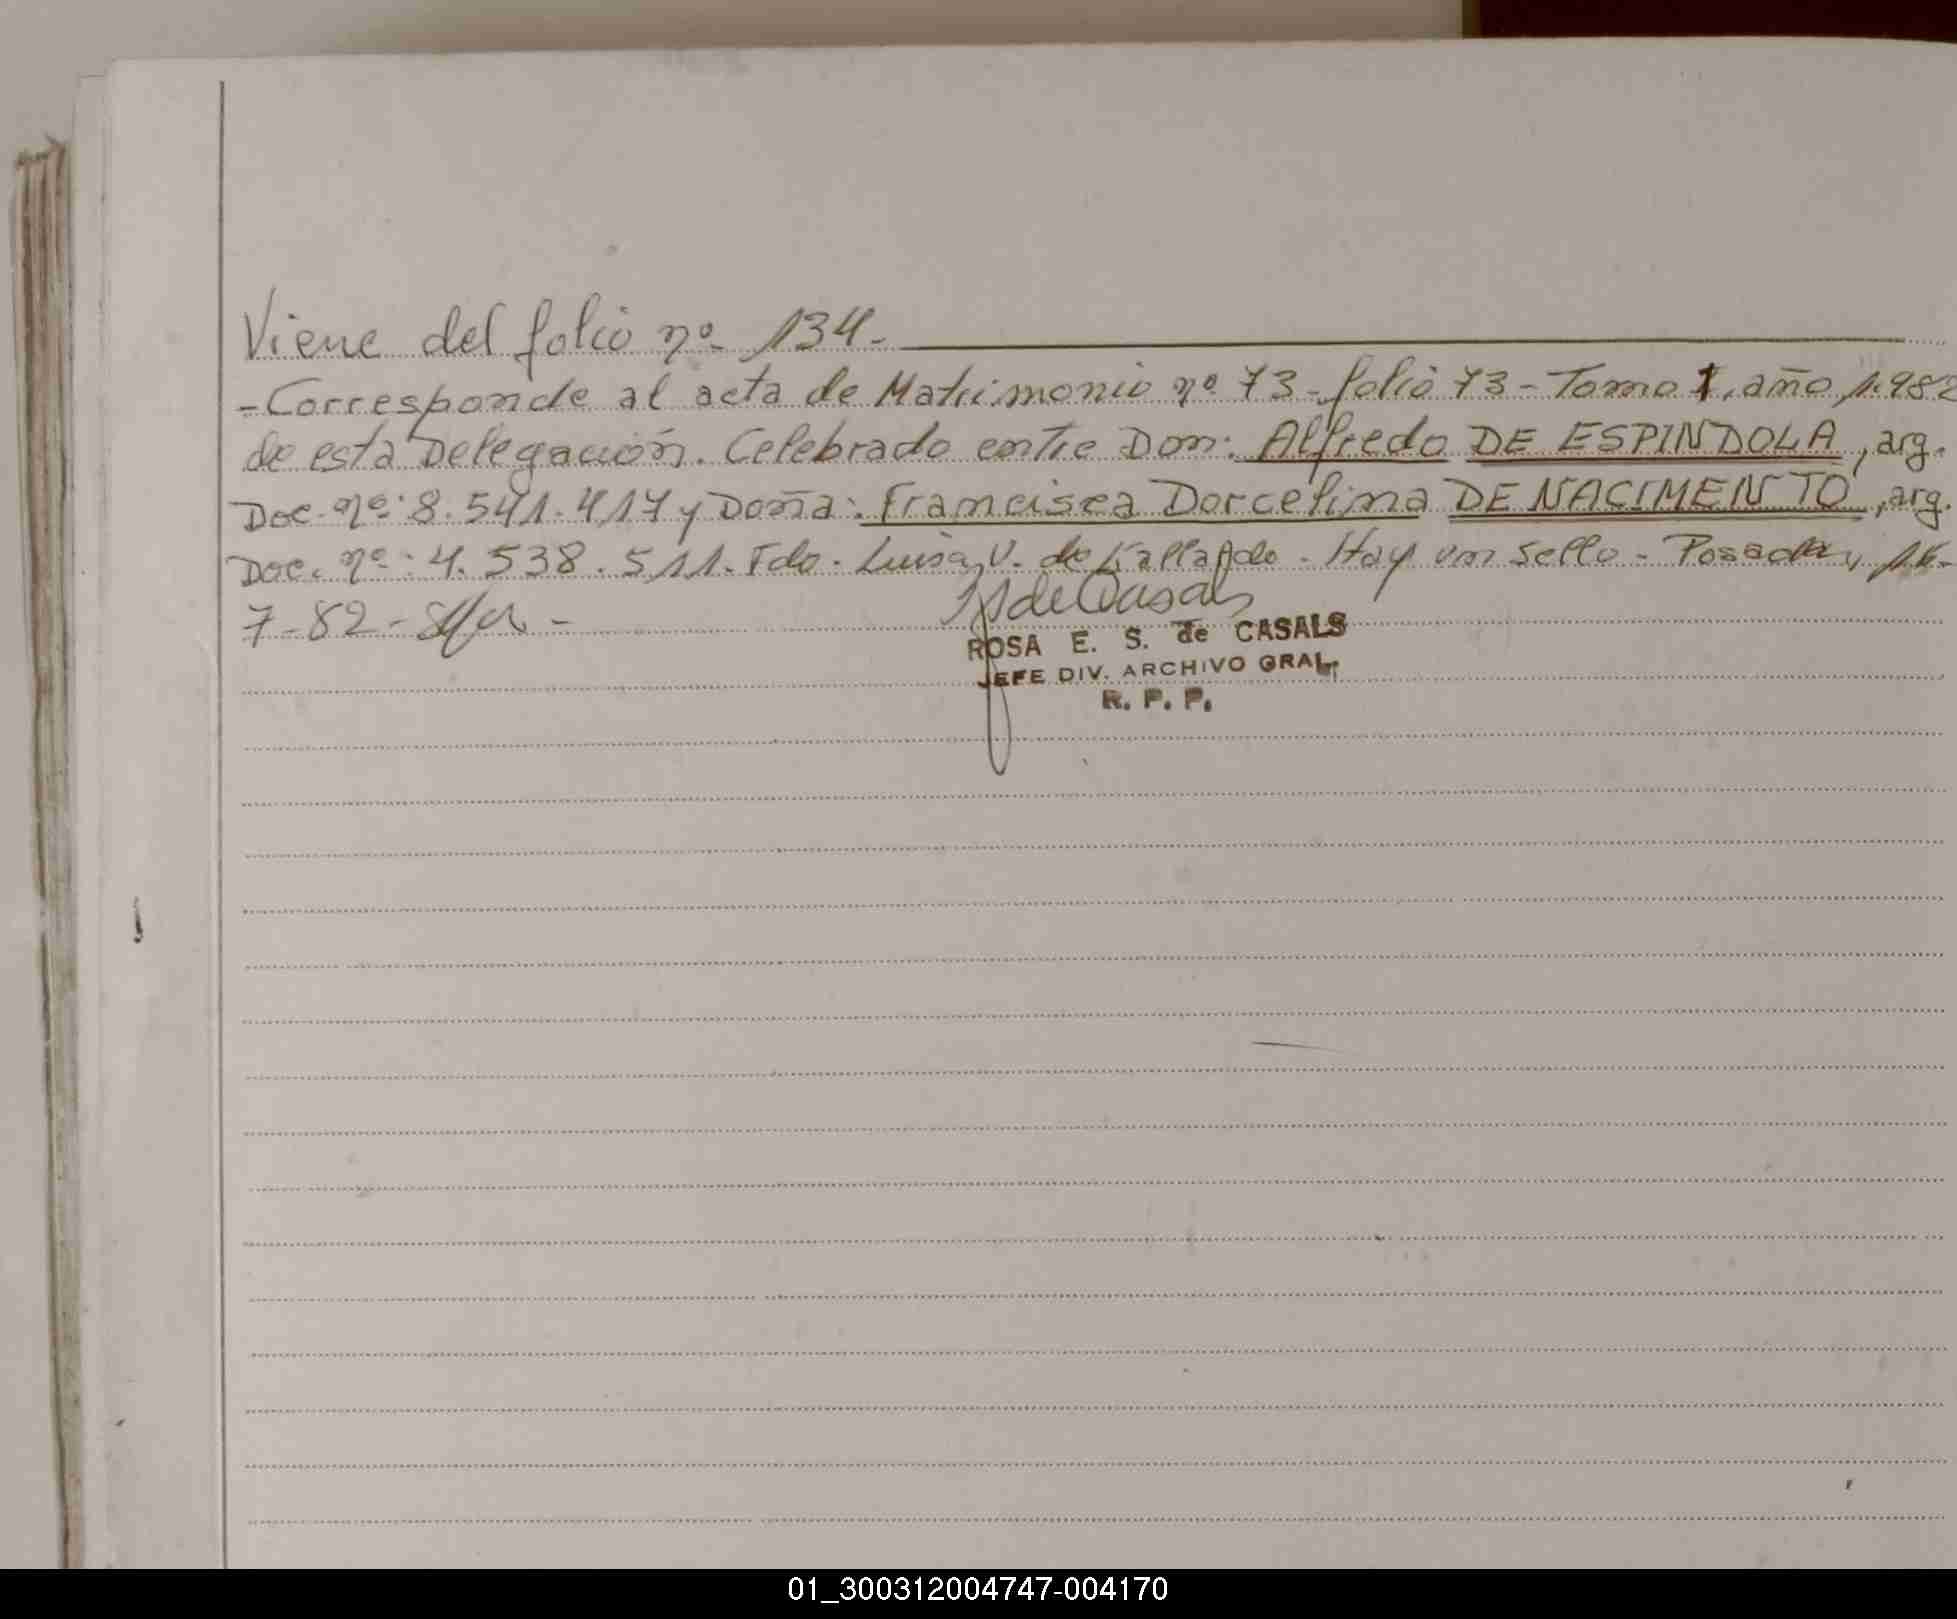 Viene del folio nº 134.
- Corresponde al acta de Matrimonio nº 73 - folio 73 - Tomo 1, año 1.982
de esta Delegación. Celebrado entre Don: Alfredo DE ESPINDOLA, arg.
Doc. nº: 8.541.417 y Doña: Francisca Dorcelina DE NACIMENTO, arg.
Doc. nº: 4.538.511. Fdo. Luisa V. de . Hay un sello - Posadas,
7-82-
ROSA E. S. de CASALS
JEFE DIV. ARCHIVO GRAL.
R. P. P.
01_300312004747-004170